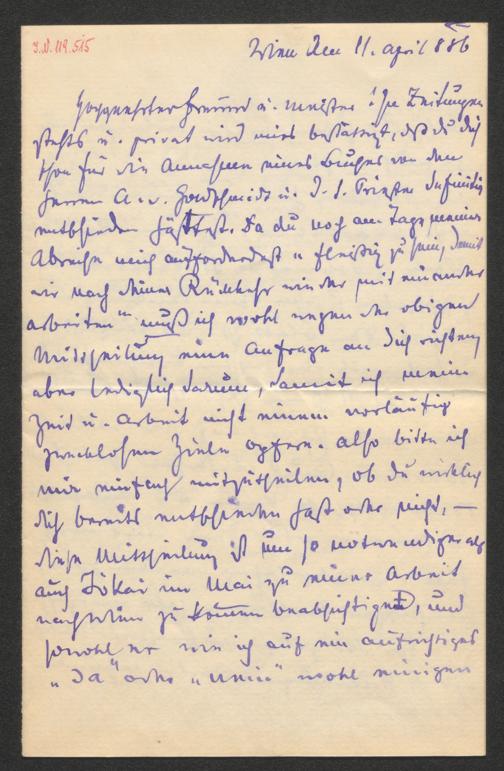 I.N. 119.515
Wien den 11. April 886
Hochgeehrter Freund u. Meister! In Zeitungen
stehts u. privat wird mirs bestättigt, daß du dich
schon für die Annahme eines Buches von den
Herren A. v. Goldschmidt u. definitiv
entschieden hättest. Da du noch am Tage meiner
Abreise mich auffordertest „fleißig zu sein, damit
wir nach deiner Rückkehr wieder mit einander
arbeiten" muß ich wohl wegen der obigen
Mittheilung eine Anfrage an dich richten
aber lediglich darum, damit ich meine
Zeit u. Arbeit nicht einem vorläufig
zwecklosen Ziele opfere. Also bitte ich
mir einfach mitzutheilen, ob du wirklich
dich bereits entschieden hast oder nicht, —
diese Mittheilung ist um so notwendiger als
auch Jókai im Mai zu einer Arbeit
nach Wien zu kommen beabsichtiget, und
sowohl er wie ich auf ein aufrichtiges
„Ja" oder „Nein" wohl einigen